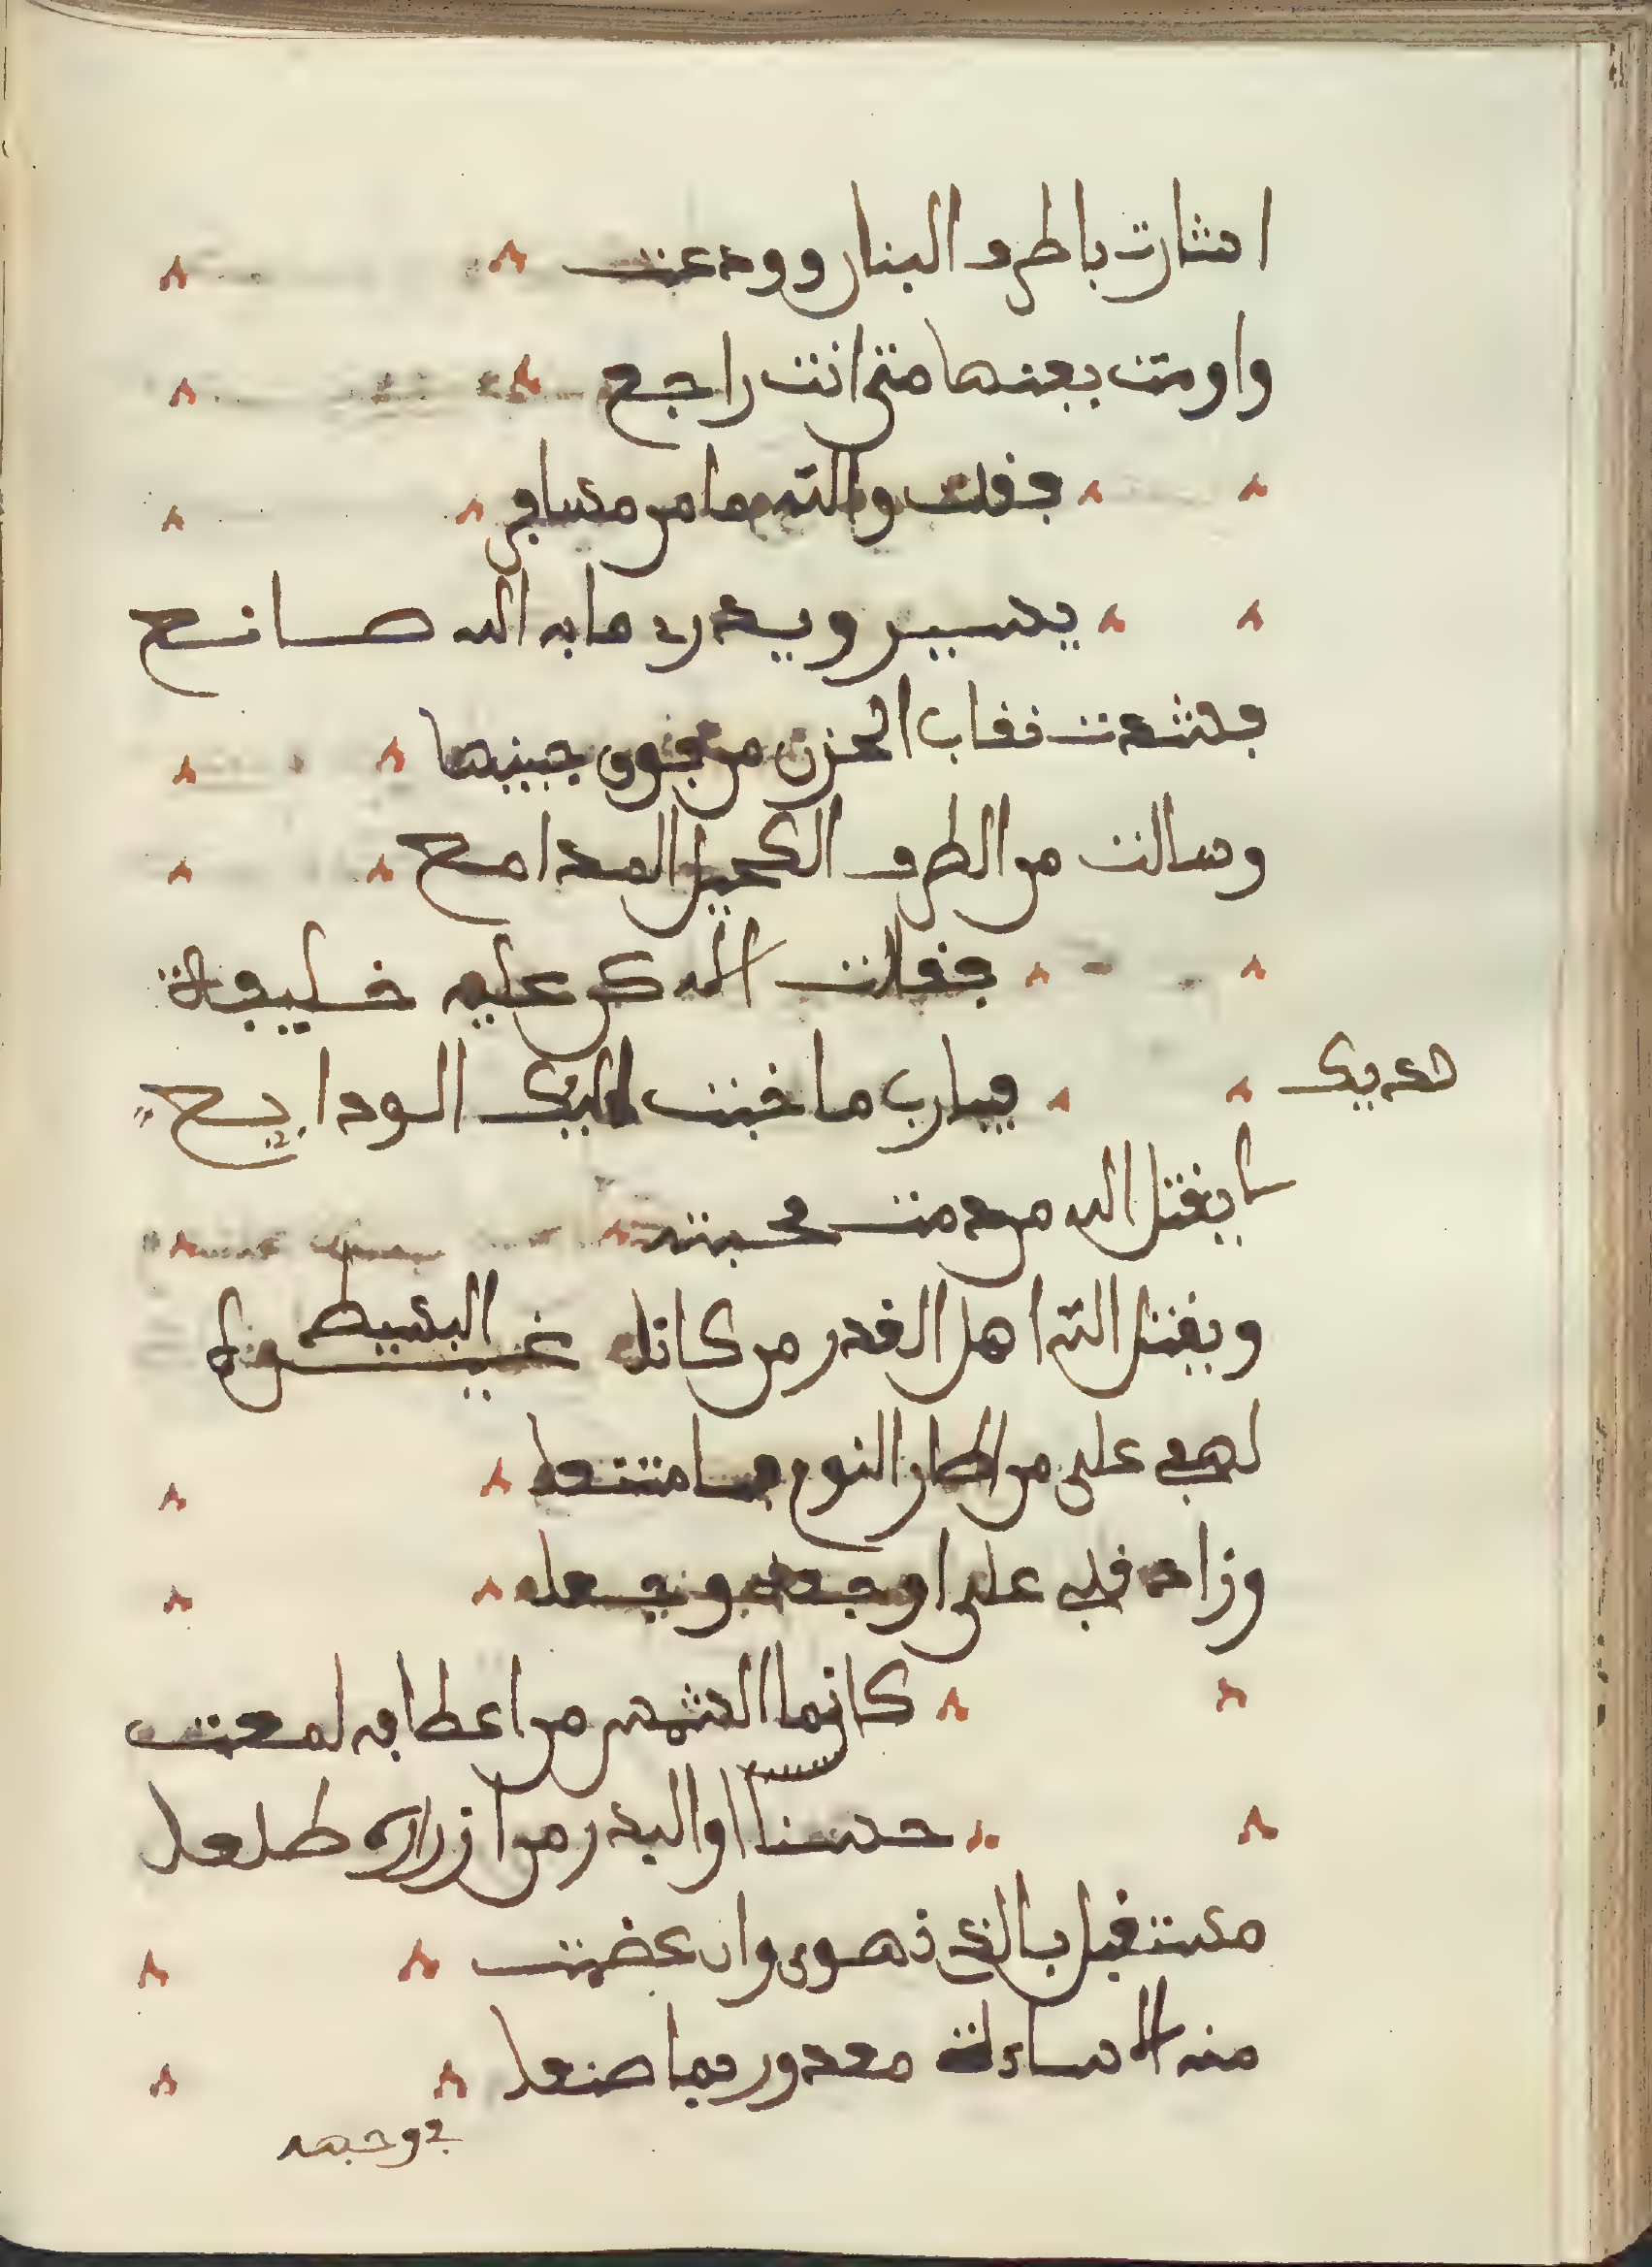 اشارت باطرف البنان وودعت
واومت بعينها متى انت راجع
فقلت والله ما من مسافر
يسير ويدر ما به الله صانع
فشدت نقاب الحزن من فوق جبينها
وسالت من الطرف الكحيل المدامع
فقلت الله كن عليه خليفة
فيارب ما خبت لديك الودايع
لديك
لا يقتل الله من دمت محبته
ويقتل الله اهل الغدر من كانوا
البسيط غيره
لهفي على من اطار النوم فامتنعا
وزاد قلبي على اوجعه وجعا
كانما الشمس من اعطافه لمعت
حسنا او البدر من ازراره طلعا
مستقبل بالذي نهوى وان عضمت
منه الاساءة معذور بما صنعا
في وجهه